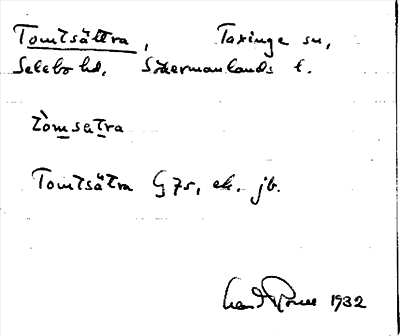 Tomtsättra, Taxinge sn,
Selebo hd, Södermanlands l.
tòmsatra
Tomtsätra G 75, ek. jb.
1932